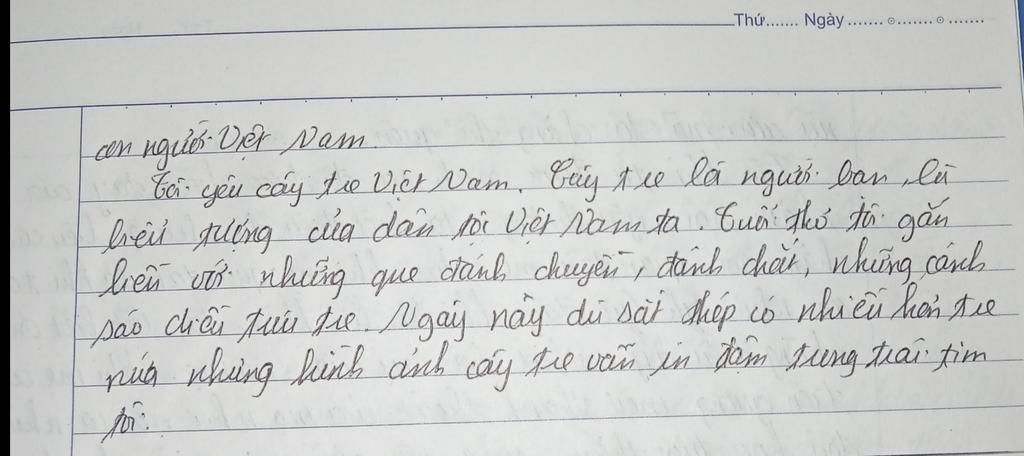 Thứ....... Ngày ....... ๏....... ๏ .......
con người Việt Nam.
Tôi yêu cây tre Việt Nam. Cây tre là người bạn, là
biểu tượng của dân tội Việt Nam ta. Tuổi thơ tôi gắn
liền với những que đánh chuyền, đánh chắt, những cánh
sáo diều trúc tre. Ngày nay dù sắt thép có nhiều hơn tre
nứa nhưng hình ảnh cây tre vẫn in đậm trong trái tim
tôi.